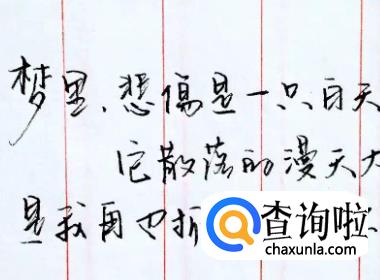 梦里，悲伤是一只白天
它散落的漫天大
是我再也折
查询啦
chaxunla.com